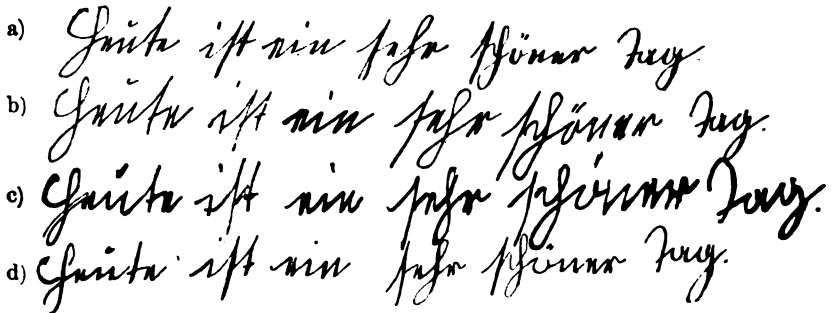 a) Heute ist ein sehr schöner Tag
b) Heute ist ein sehr schöner Tag.
c) Heute ist ein sehr schöner Tag.
d) Heute ist ein sehr schöner Tag.